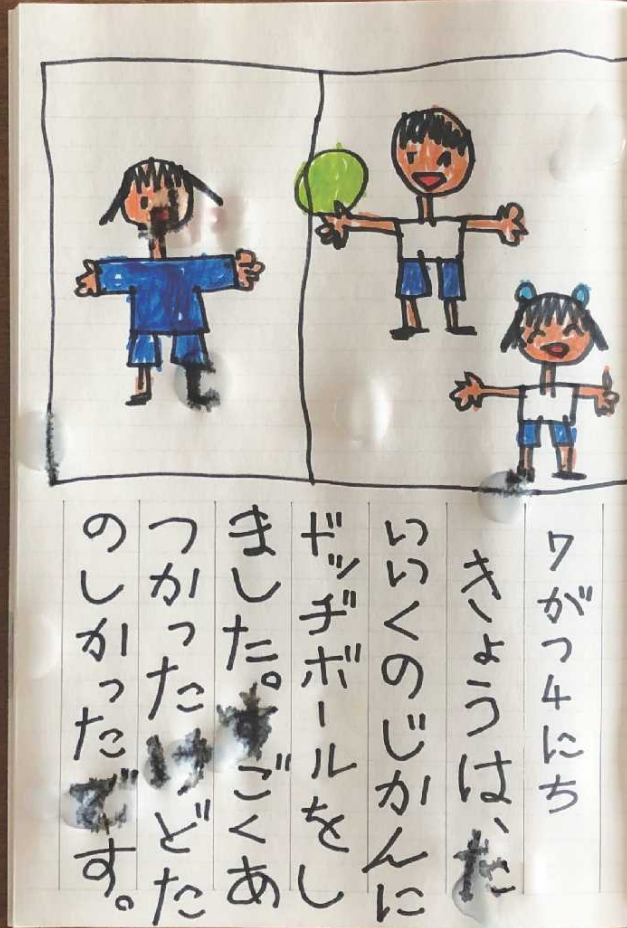 7がつ4にち
きょうは、た
いいくのじかんに
ドッヂボールをし
ました。すごくあ
つかったけどた
のしかったです。